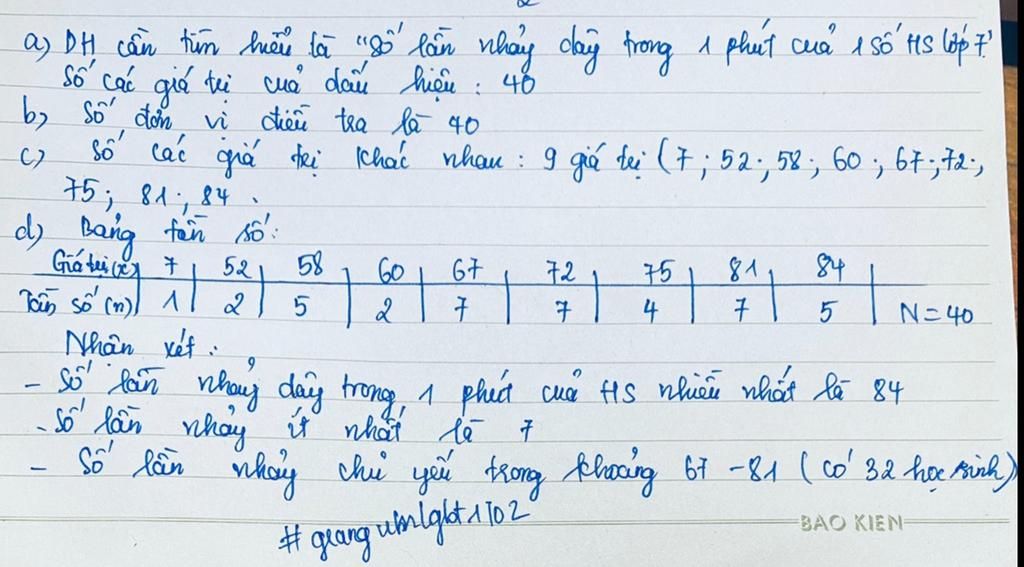 a) DH cần tìm hiểu là "Số lần nhảy dây trong 1 phút của 1 số HS lớp 7"
Số các giá trị của dấu hiệu : 40
b) Số đơn vị điều tra là 40
c) Số các giá trị khác nhau : 9 giá trị (7 ; 52 ; 58 ; 60 ; 67 ; 72 ;
75 ; 81 ; 84 .
d) Bảng tần số :
Giá trị (x) 7 52 58 60 67 72 75 81 84
Tần số (n) 1 2 5 2 7 7 4 7 5 N = 40
Nhận xét :
- Số lần nhảy dây trong 1 phút của HS nhiều nhất là 84
- Số lần nhảy ít nhất là 7
- Số lần nhảy chủ yếu trong khoảng 67 - 81 (có 32 học sinh)
BAO KIEN